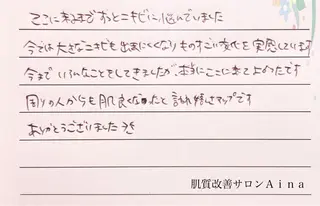 ここに来るまでずっとニキビに悩んでいました
今では大きなニキビも出来にくくなりものすごい変化を実感しています
今までいろんなことをしてきましたが、本当にここに来てよかったです
周りの人からも肌良くなったと言われ嬉しさマックスです
ありがとうございました
肌質改善サロンAina